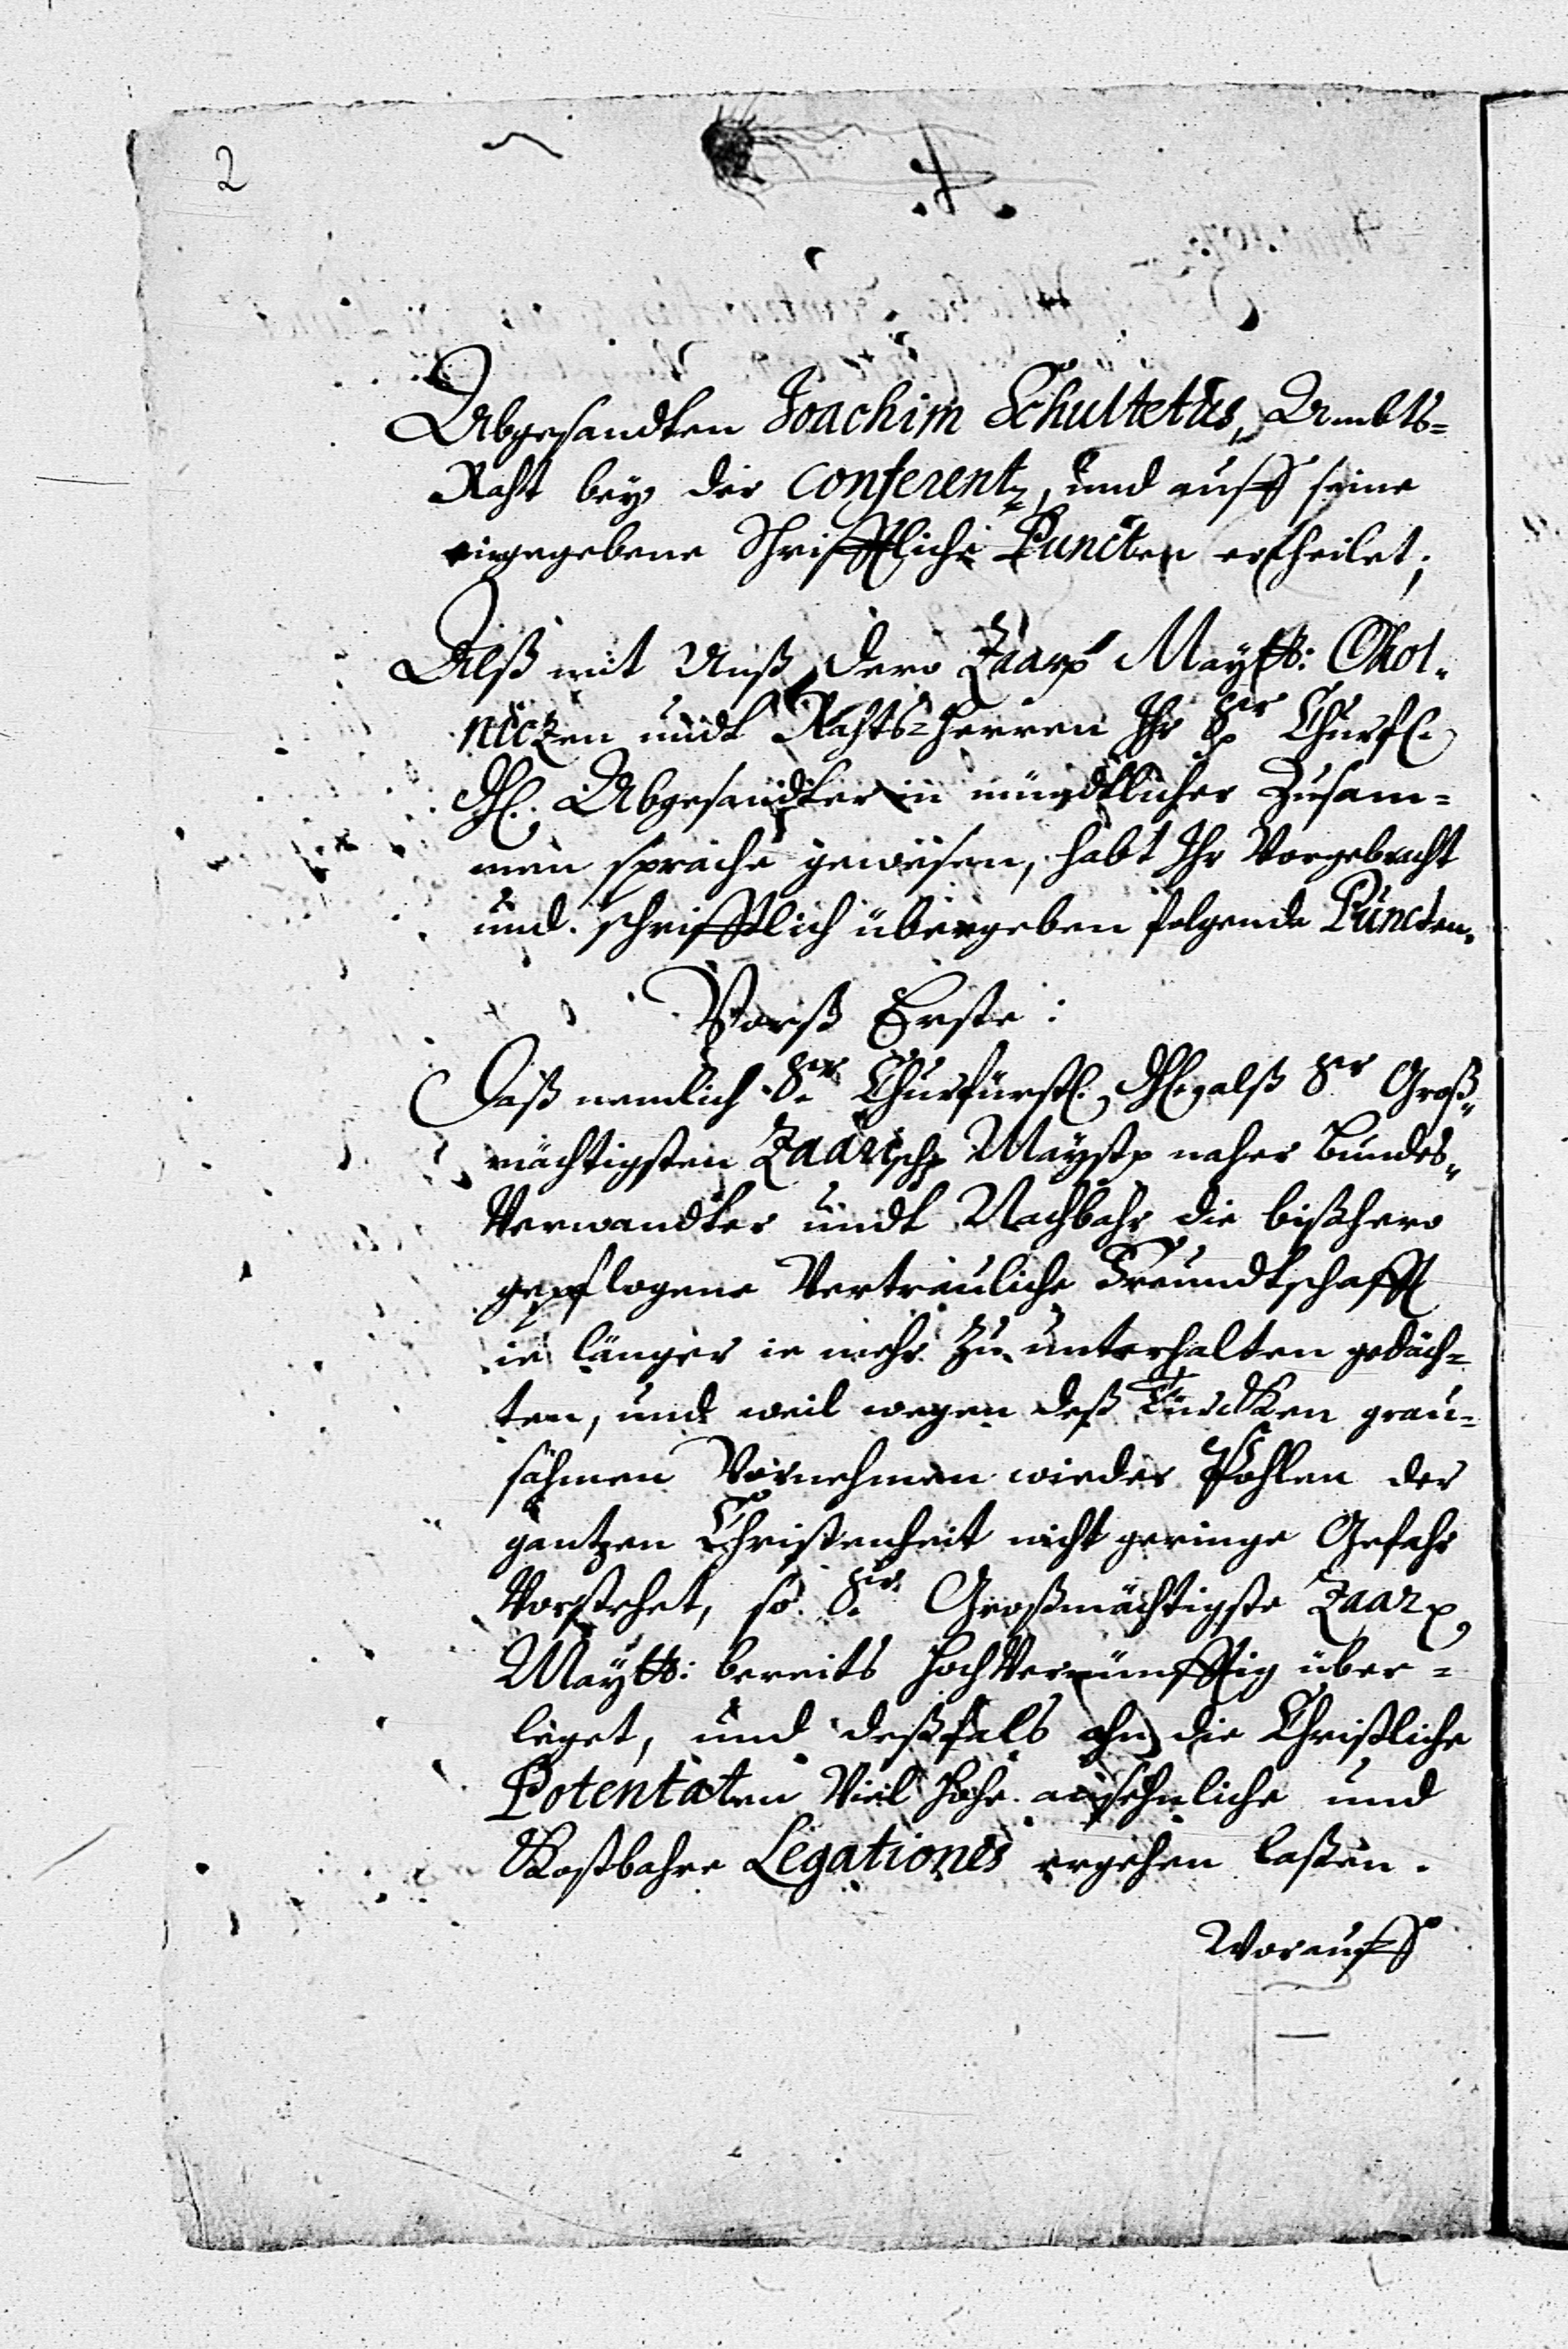 2
Abgesandten Joachim Schultetus, Ambts=
Raht bey der Conferentz, und auff seine
eingegebene Schrifftliche Puncten ertheilet;
Alß mit Unß dero Zaarr Maytt: Okol„
niczen undt Rahts=Herren Ihr Sr Churfl.
Dhl. Abgesandter in mündtlicher Zusam=
men sprache gewesen, habt Ihr Vorgebracht
und schrifftlich übergeben folgende Puncten.
Vorß Erste:
Daß nemlich Sr Churfürstl. Dhl. alß Sr Groß„
mächtigsten Zaarisch Maystr naher Bundes„
Verwandter undt Nachbahr die bißhero
gepflogene Vertrauliche Freundtschafft
ie länger ie mehr zu unterhalten gedäch=
ten, und weil wegen deß Türcken grau=
sahmen Vornehmen wieder Pohlen der
gantzen Christenheit nicht geringe Gefahr
Vorstehet, so Sr Großmächtigste Zaar
Maytt: bereits hochvernünfftig über=
leget, und deßfals ahn die Christliche
Potentaten Viel hohe ansehnliche und
Kostbahre Legationes ergehen laßen.
Worauff